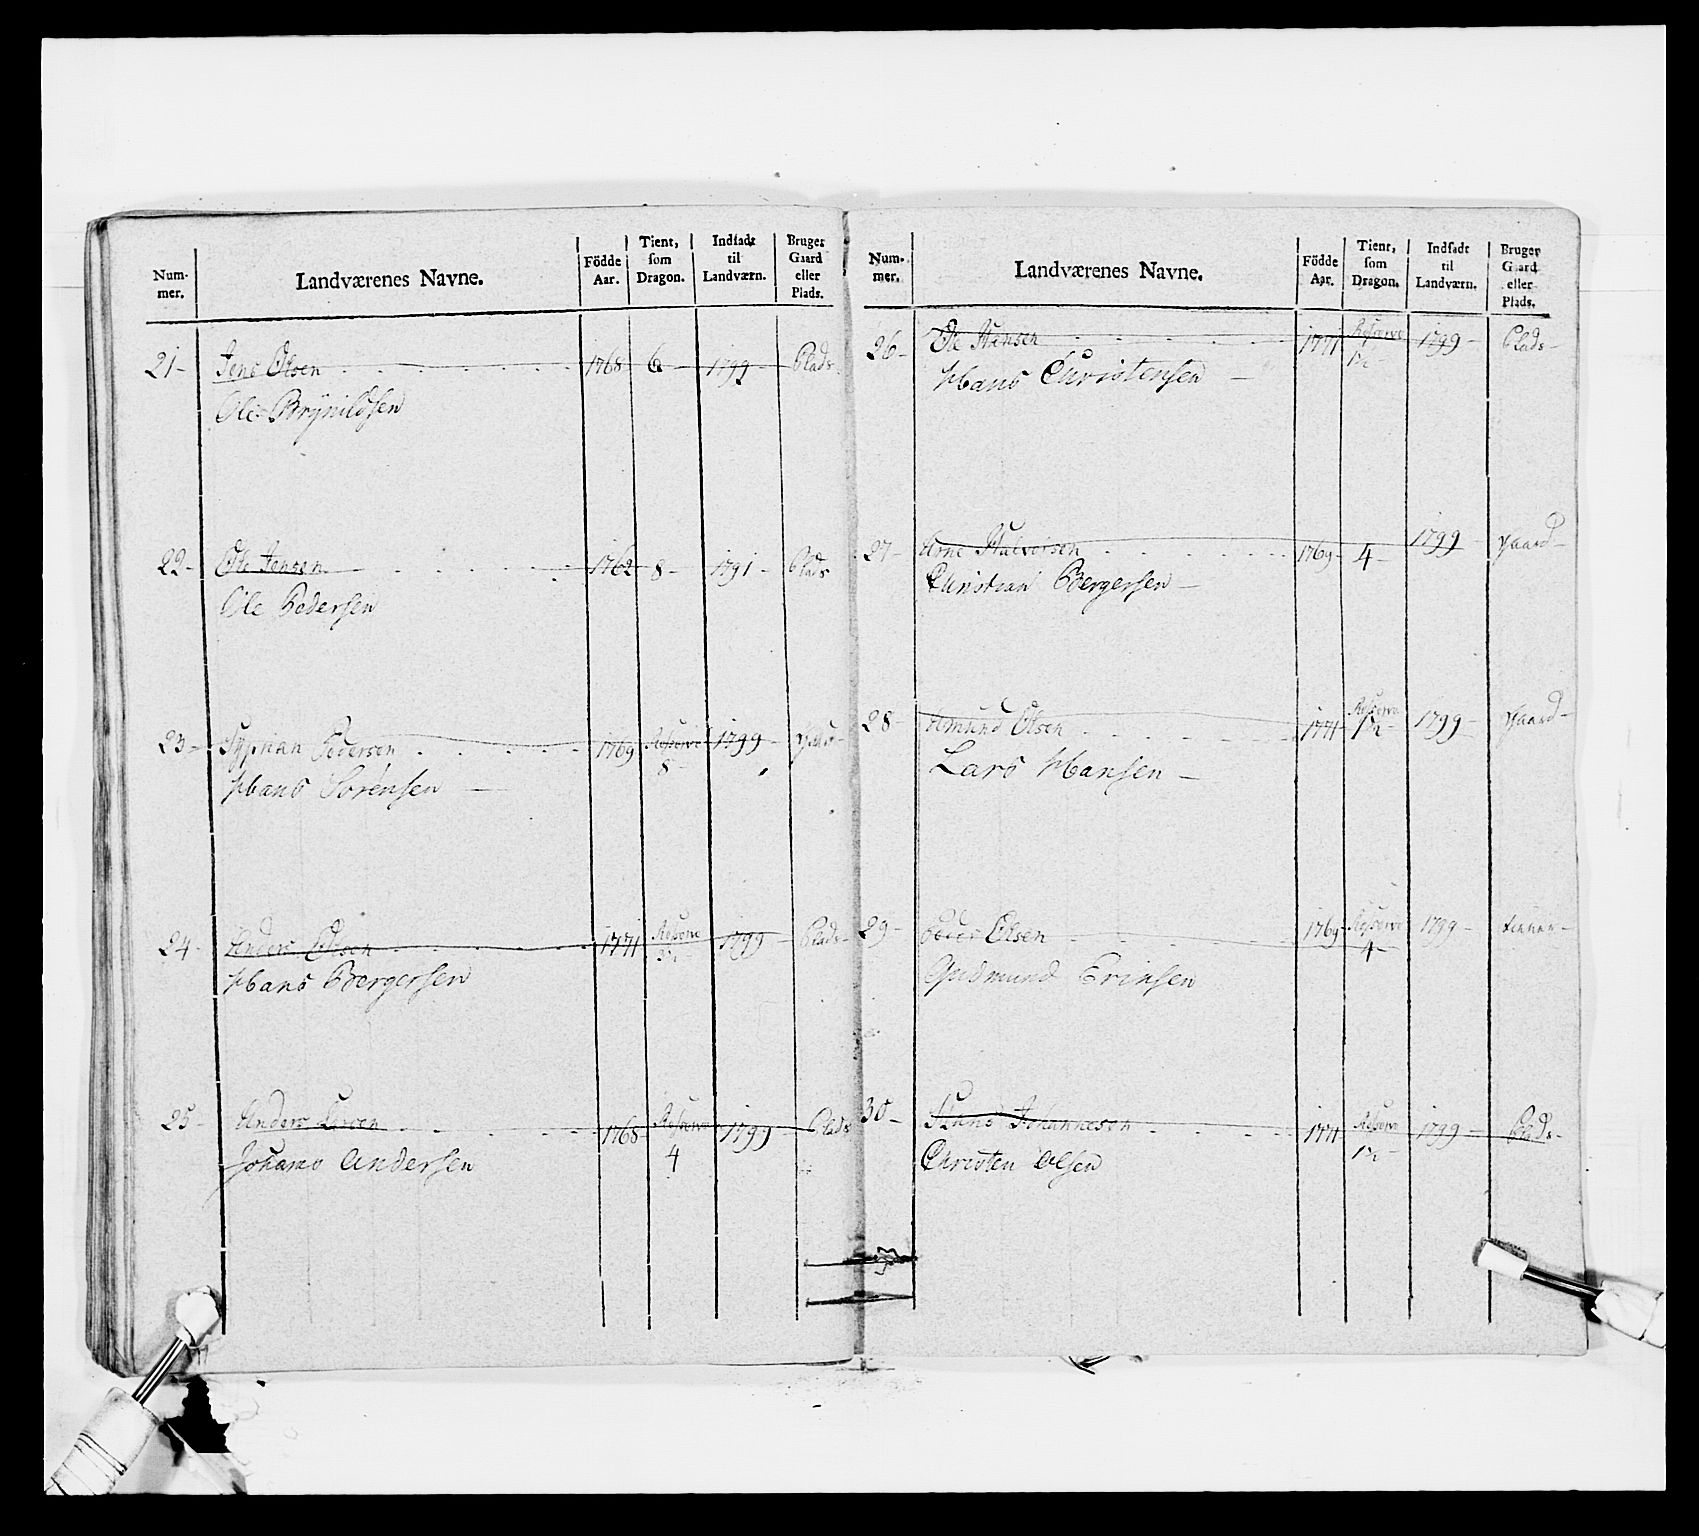 Num-
mer.
Landværenes Navne.
Födde
Aar.
Tient,
som
Dragon.
Indsadt
til
Landværn.
Bruger
Gaard
eller
Plads.
21- Jens Olsen 1768- 6- 1799- Plads-
Ole Brynildsen
22- Ole Jensen 1762- 8- 1791- Plads
Ole Pedersen
23- Syprian Pedersen 1769 Reserve 8- 1799-
Hans Sörensen -
24- Anders Olsen 1771 Reserve 1799- Plads-
Hans Bergersen
25- Anders Larsen 1768 Reserve 4 1799- Plads
Johans Andersen
Num-
mer.
Landværenes Navne.
Födde
Aar.
Tient,
som
Dragon.
Indsadt
til
Landværn.
Bruger
Gaard
eller
Plads.
26- Ole Hensen 1771 Reserve 1½ 1799- Plads-
Hans Christensen -
27- Arne Halvorsen 1769- 4- 1799- Gaard-
Christian Bergersen -
28- Amund Olsen 1771- Reserve 1½- 1799- Gaard-
Lars Hansen -
29- Peder Olsen 1769- Reserve 4- 1799-
Gudmund
30- Hans Johannesen 1771 Reserve 1½- 1799- Plads-
Christen Olsen